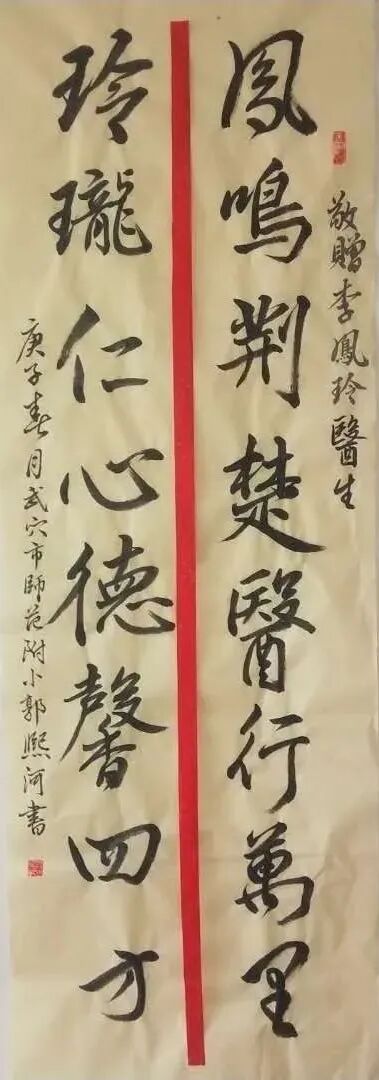 敬贈李鳳玲醫生
鳳鳴荆楚醫行萬里
玲瓏仁心德馨四方
庚子春月武穴市師范附小郭熙河書